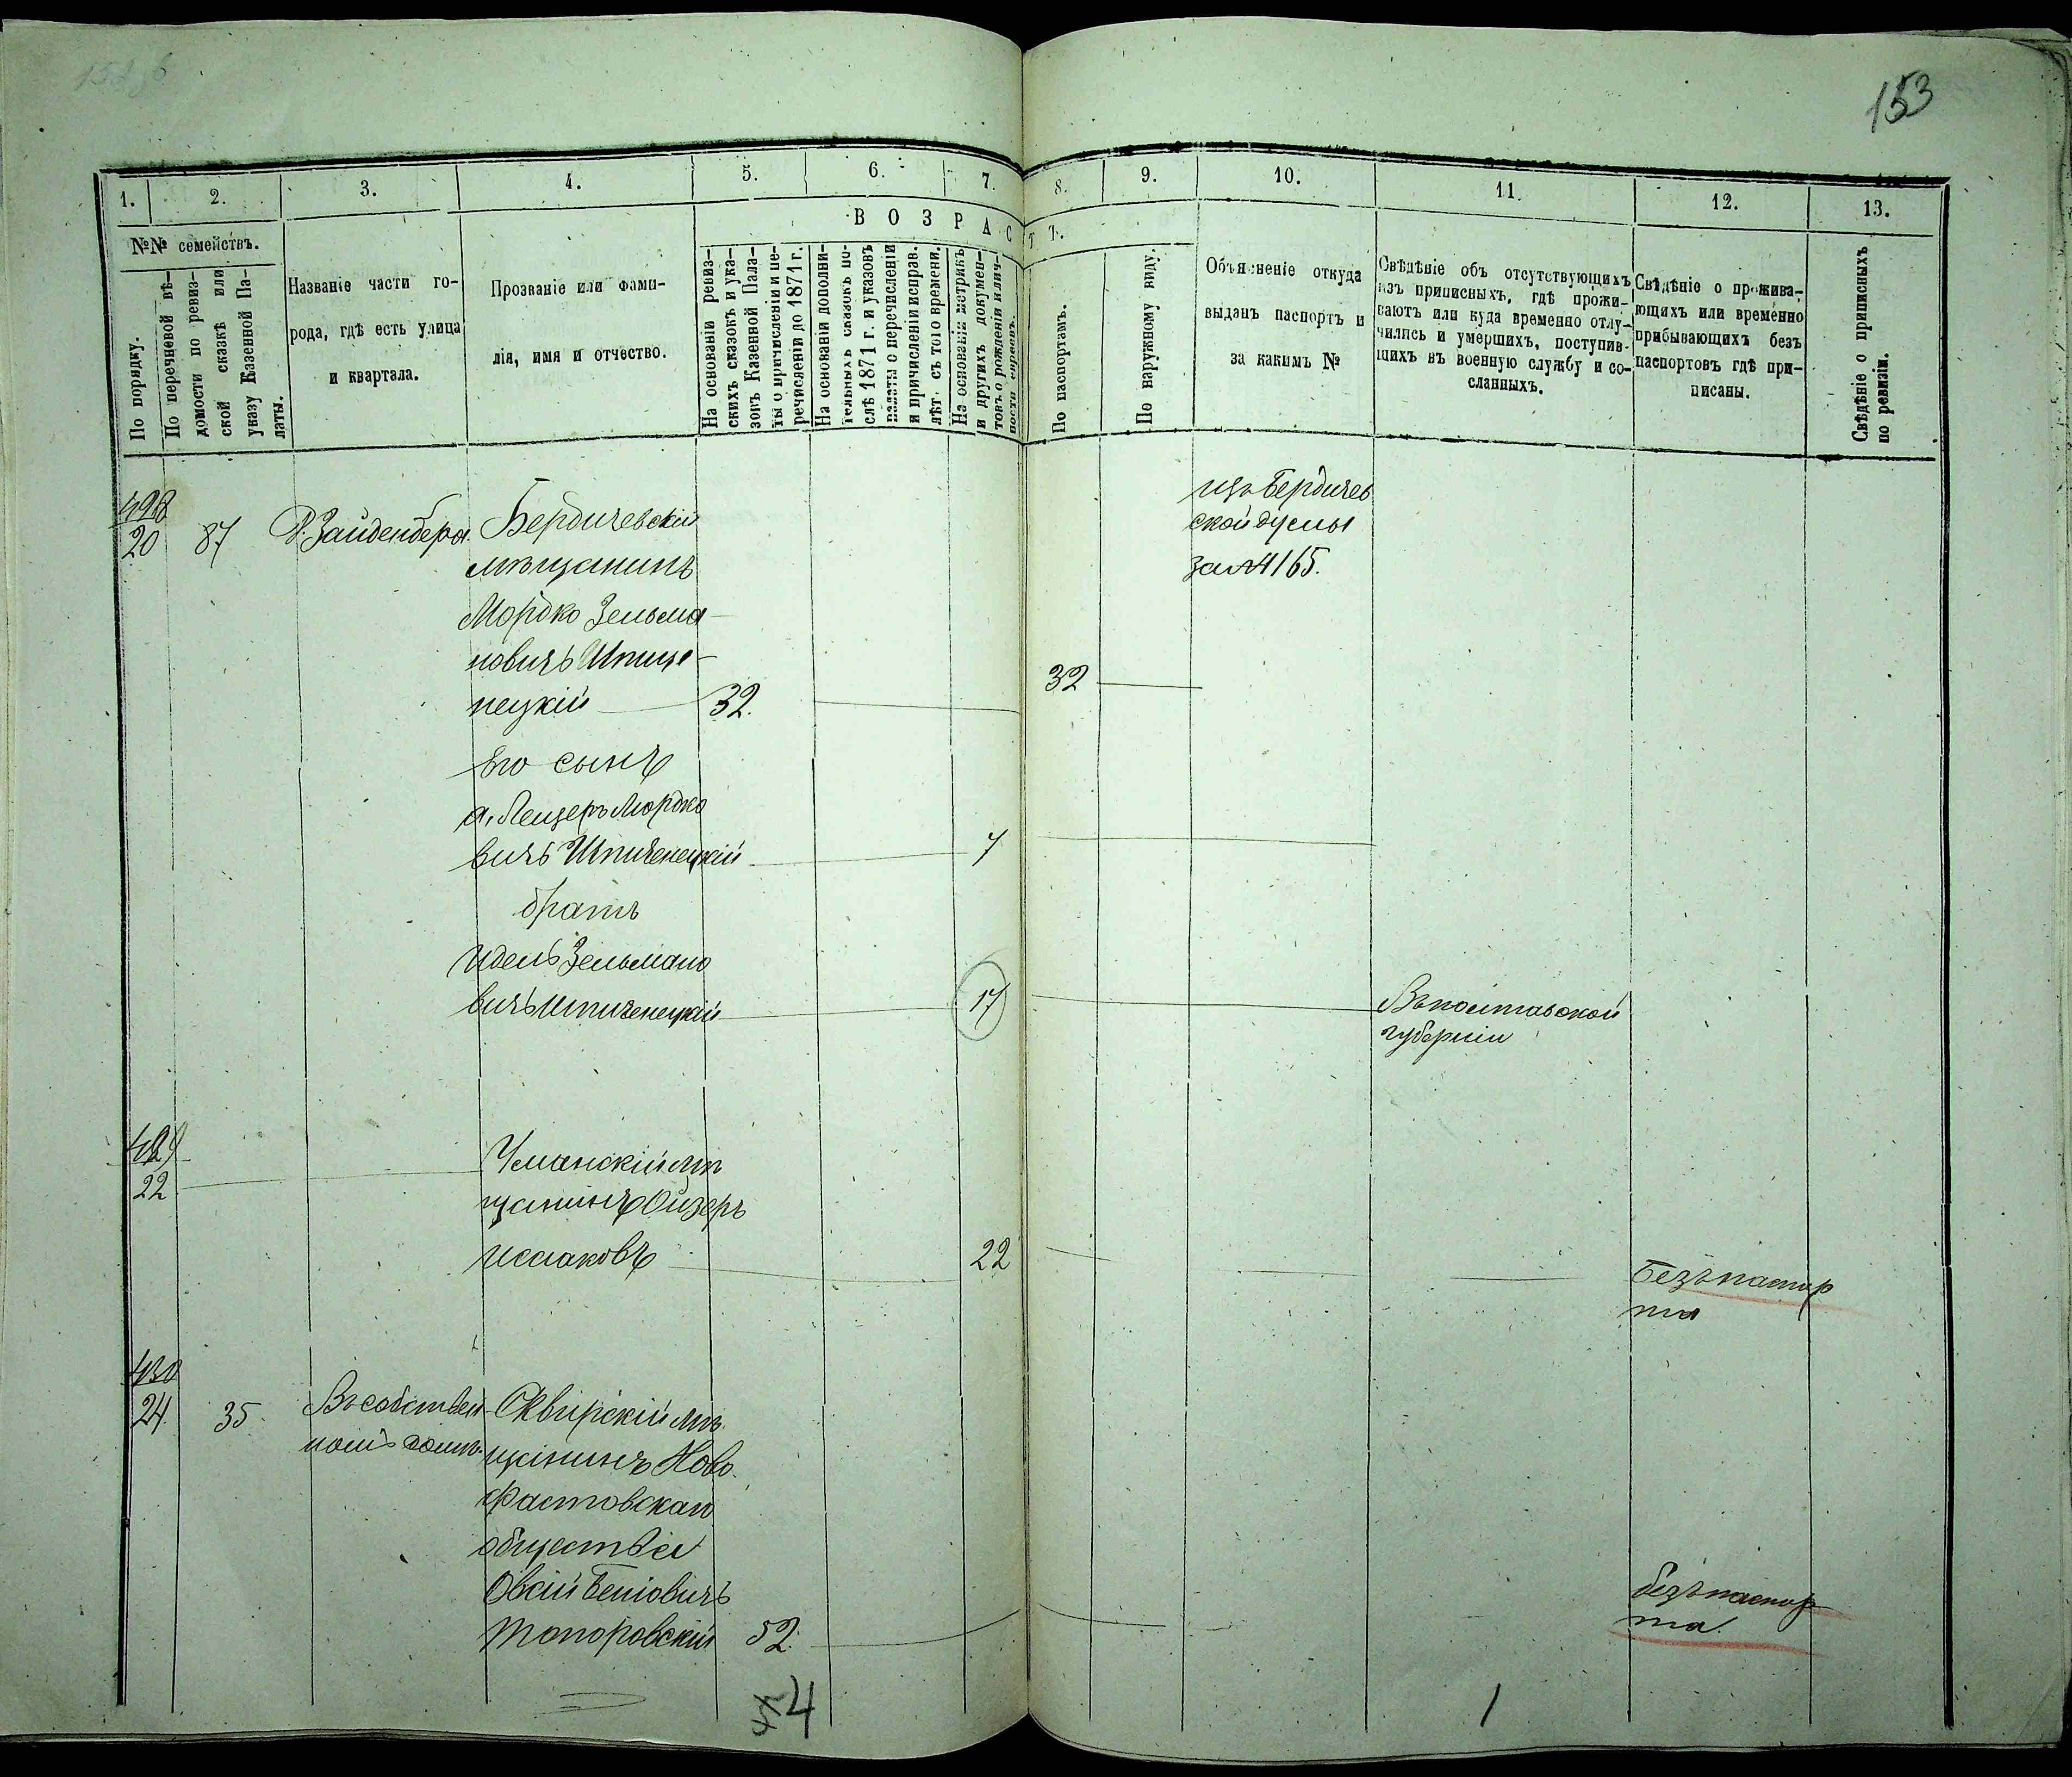 153
1. 2. 3. 4. 5. 6. 7. 8. 9. 10. 11. 12. 13.
№№ семействъ.
По порядку.
По перечневой вѣ-
домости по ревиз-
ской сказкѣ или
указу Казенной Па-
латы.
Названіе части го-
рода, гдѣ есть улица
и квартала.
Прозваніе или фами-
лія, имя и отчество.
ВОЗРАСТЪ.
На основаніи ревиз-
скихъ сказокъ и ука-
зовъ Казенной Пала-
ты о причисленіи и пе-
речисленіи до 1871 г.
На основаніи дополни-
тельныхъ сказокъ по-
слѣ 1871 г. и указовъ
палаты о перечисленіи
и причисленіи исправ.
лѣт. съ того времени.
На основаніи метрикъ
и другихъ докумен-
товъ о рожденіи и лич-
ности евреевъ.
По паспортамъ.
По наружному виду.
Объясненіе откуда
выданъ паспортъ и
за какимъ №
Свѣдѣніе объ отсутствующихъ
изъ приписныхъ, гдѣ прожи-
ваютъ или куда временно отлу-
чились и умершихъ, поступив-
шихъ въ военную службу и со-
сланныхъ.
Свѣдѣніе о прожива-
ющихъ или временно
прибывающихъ безъ
паспортовъ гдѣ при-
писаны.
Свѣдѣніе о приписныхъ
по ревизіи.
428
20 87 Зайденберга
Бердичевскій
мѣщанинъ
Мордко Зельма-
новичъ Шпиче-
нецкій 32. 32
изъ Бердичев
ской думы
за № 4165.
Его сынъ
а, Лейзеръ Мордко
вичъ Шпиченецкій 7
братъ
Идель Зельмано
вичъ Шпиченецкій 17
Въ Полтавской
губерніи
429
22
Уманскій мѣ
щанинъ Ойзеръ
Исааковъ 22
Безъ паспор
та
430
24. 35.
Въ собствен
номъ домѣ.
Сквирскій мѣ
щанинъ Ново
Фастовскаго
общества
Овсій
Топоровскій 52.
безъ паспор
та.
4
1